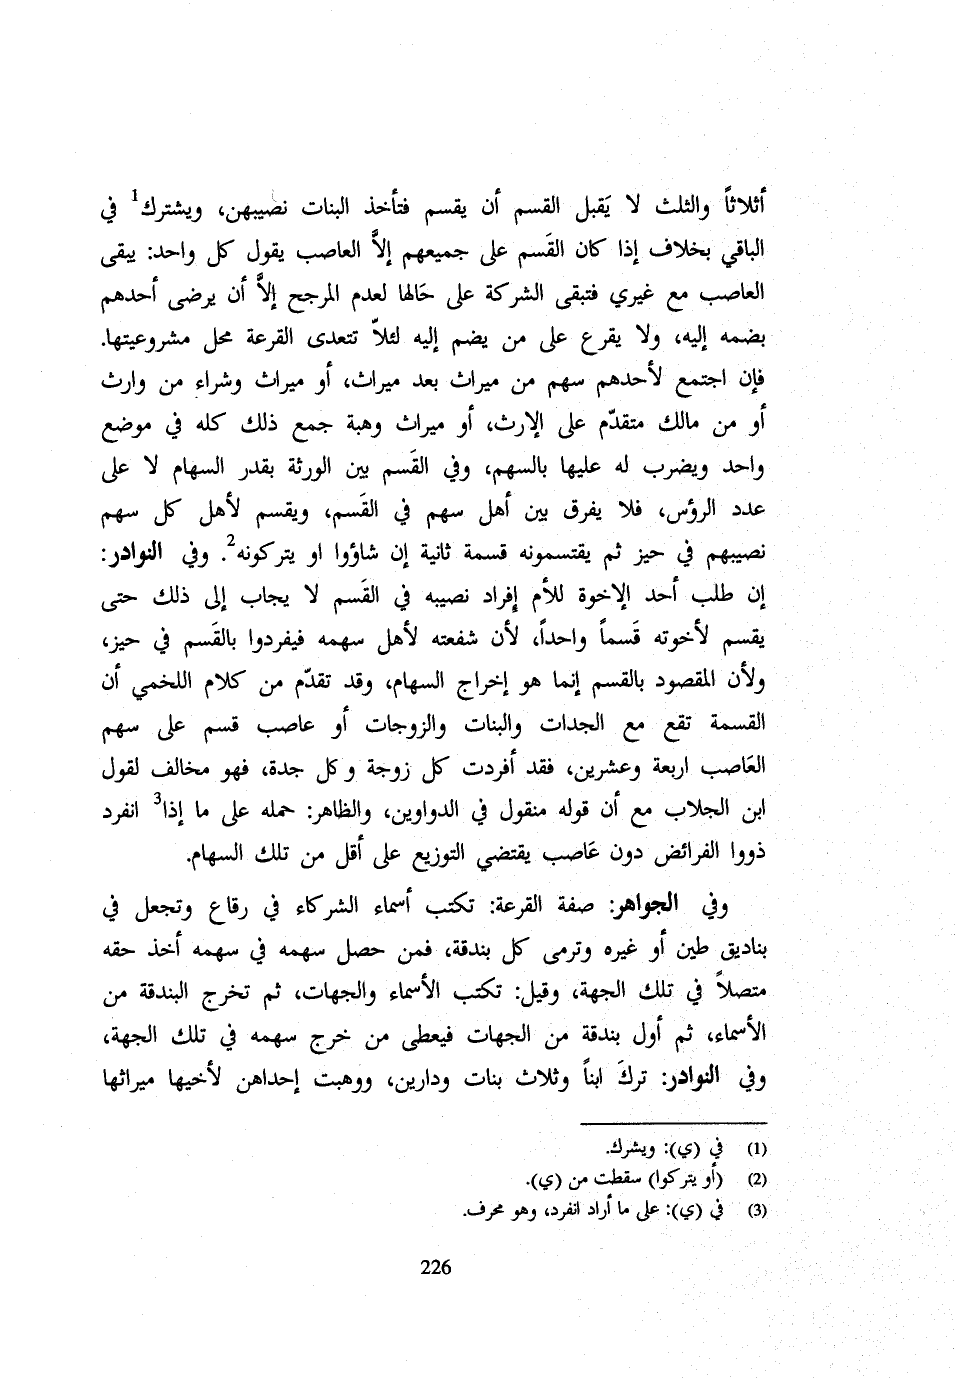 أثلاثاً والثلث لا يَقبل القسم أن يقسم فتأخذ البنات نصيبهن، ويشترك1 في
الباقي بخلاف إذا كان القَسم على جميعهم إلاَّ العاصب يقول كل واحد: يبقى
العاصب مع غيري فتبقى الشركة على حَالها لعدم المرجح إلاَّ أن يرضى أحدهم
بضمه إليه، ولا يقرع على من يضم إليه لئلاّ تتعدى القرعة محل مشروعيتها.
فإن اجتمع لأحدهم سهم من ميراث بعد ميراث، أو ميراث وشراء من وارث
أو من مالك متقدّم على الإرث، أو ميراث وهبة جمع ذلك كله في موضع
واحد ويضرب له عليها بالسهم، وفي القَسم بين الورثة بقدر السهام لا على
عدد الرؤس، فلا يفرق بين أهل سهم في القَسم، ويقسم لأهل كل سهم
نصيبهم في حيز ثم يقتسمونه قسمة ثانية إن شاؤوا او يتركونه2. وفي النوادر:
إن طلب أحد الإخوة للأم إفراد نصيبه في القَسم لا يجاب إلى ذلك حتى
يقسم لأخوته قَسماً واحداً، لأن شفعته لأهل سهمه فيفردوا بالقَسم في حيز،
ولأن المقصود بالقسم إنما هو إخراج السهام، وقد تقدّم من كلام اللخمي أن
القسمة تقع مع الجدات والبنات والزوجات أو عاصب قسم على سهم
العَاصب اربعة وعشرين، فقد أفردت كل زوجة وكل جدة، فهو مخالف لقول
ابن الجلاب مع أن قوله منقول في الدواوين، والظاهر: حمله على ما إذا3 انفرد
ذووا الفرائض دون عَاصب يقتضي التوزيع على أقل من تلك السهام.
وفي الجواهر: صفة القرعة: تكتب أسماء الشركاء في رقاع وتجعل في
بناديق طين أو غيره وترمى كل بندقة، فمن حصل سهمه في سهمه أخذ حقه
متصلاً في تلك الجهة، وقيل: تكتب الأسماء والجهات، ثم تخرج البندقة من
الأسماء، ثم أول بندقة من الجهات فيعطى من خرج سهمه في تلك الجهة،
وفي النوادر: تركَ ابناً وثلاث بنات ودارين، ووهبت إحداهن لأخيها ميراثها
(1) في (ي): ويشرك.
(2) (أو يتركوا) سقطت من (ي).
(3) في (ي): على ما أراد انفرد، وهو محرف.
226